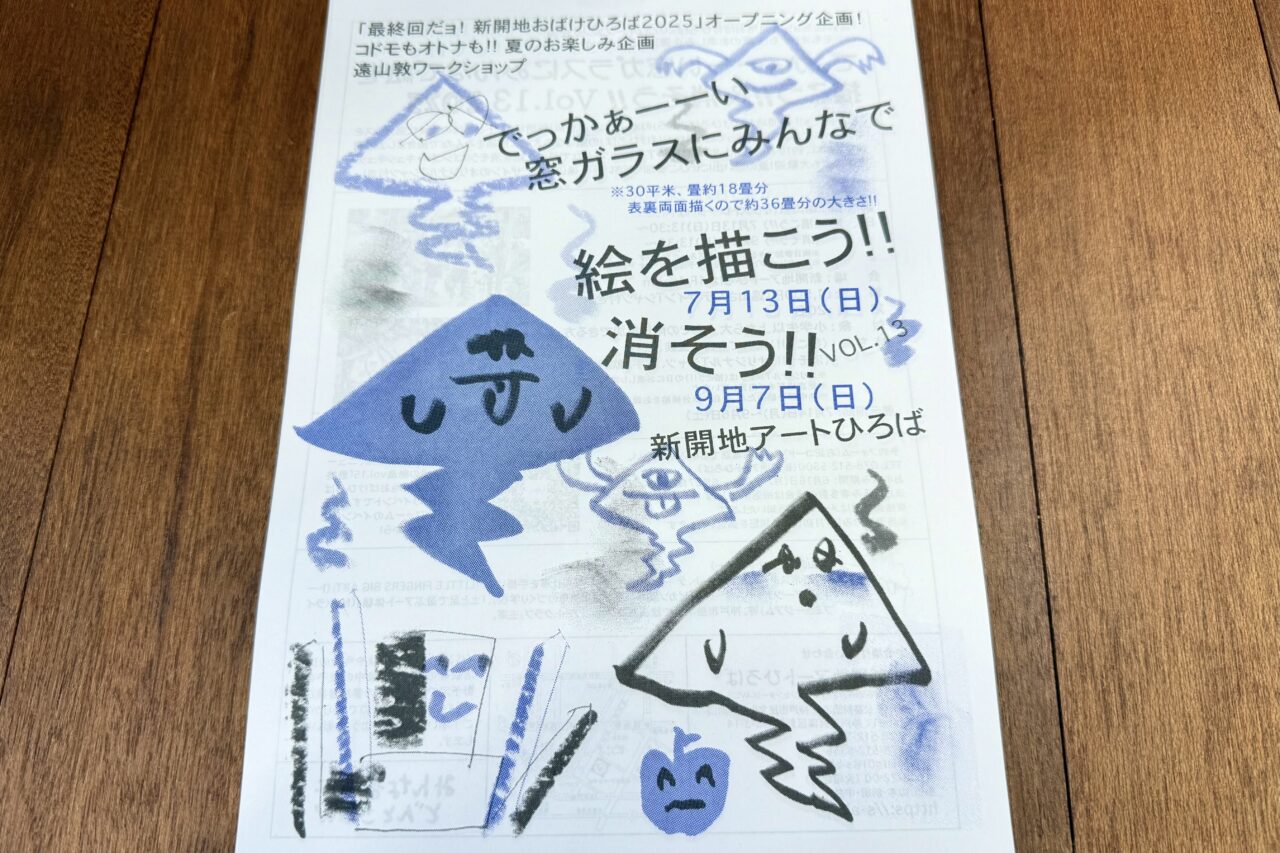 「最終回だョ！ 新開地おばけひろば2025」オープニング企画！
コドモもオトナも!! 夏のお楽しみ企画
遠山敦ワークショップ
でっかぁーーい
窓ガラスにみんなで
※30平米、畳約18畳分
表裏両面描くので約36畳分の大きさ!!
絵を描こう!!
7月13日（日）
消そう!! VOL.13
9月7日（日）
新開地アートひろば